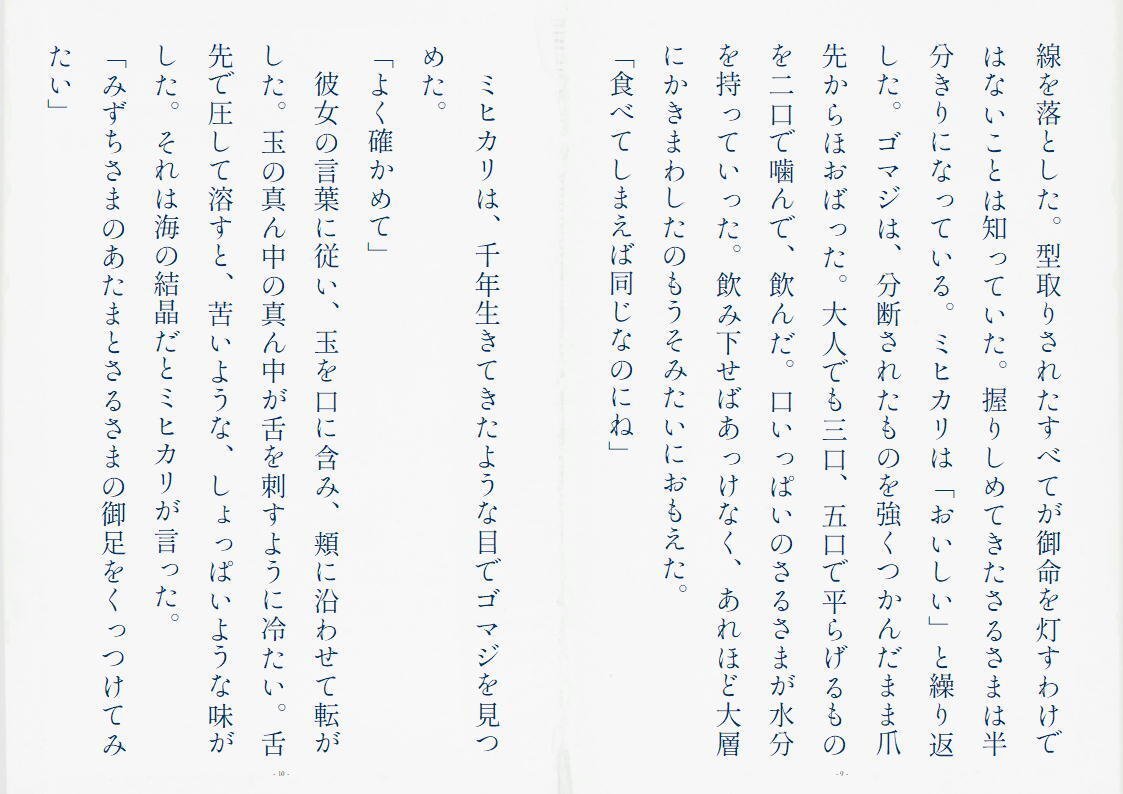 線を落とした。型取りされたすべてが御命を灯すわけで
はないことは知っていた。握りしめてきたさるさまは半
分きりになっている。ミヒカリは「おいしい」と繰り返
した。ゴマジは、分断されたものを強くつかんだまま爪
先からほおばった。大人でも三口、五口で平らげるもの
を二口で噛んで、飲んだ。口いっぱいのさるさまが水分
を持っていった。飲み下せばあっけなく、あれほど大層
にかきまわしたのもうそみたいにおもえた。
「食べてしまえば同じなのにね」
- 9 -
ミヒカリは、千年生きてきたような目でゴマジを見つ
めた。
「よく確かめて」
彼女の言葉に従い、玉を口に含み、頬に沿わせて転が
した。玉の真ん中の真ん中が舌を刺すように冷たい。舌
先で圧して溶すと、苦いような、しょっぱいような味が
した。それは海の結晶だとミヒカリが言った。
「みずちさまのあたまとさるさまの御足をくっつけてみ
たい」
- 10 -